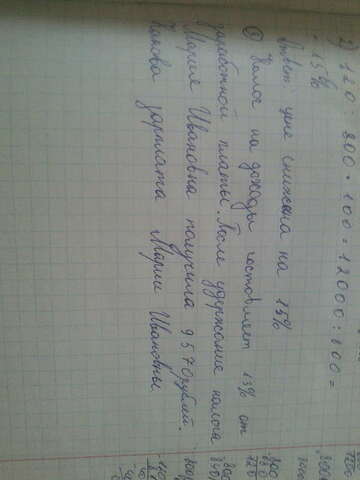 2) 120 : 800 · 100 = 12000 : 800 =
= 15%
Ответ: цена снижена на 15%
Налог на доходы составляет 13% от
заработной платы. После удержания налога
Мария Ивановна получила 9570 рублей.
Какова зарплата Марии Ивановны